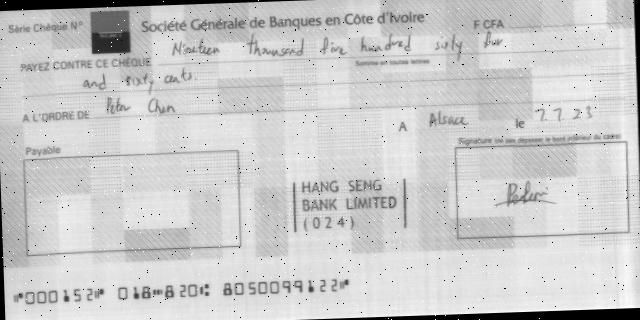 Série Chèque N° Société Générale de Banques en Côte d'Ivoire F CFA
PAYEZ CONTRE CE CHÈQUE Nineteen thousand five hundred sixty four
Somme en toutes lettres
and sixty cents.
A L'ORDRE DE Peter Chen
A Alsace le 7.7.23
Payable
HANG SENG
BANK LIMITED
(024)
⑈000152⑈ 018⑉820⑆ 8050099122⑈